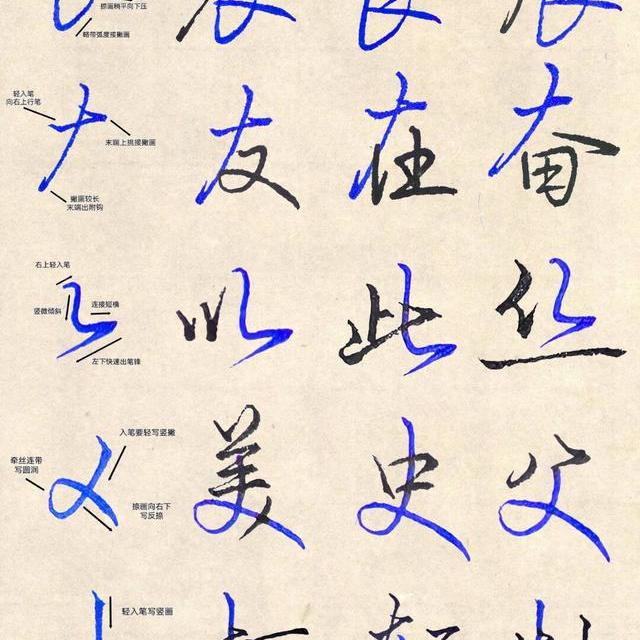 捺画稍平向下压
略带弧度接撇画
轻入笔
向右上行笔
末端上挑接撇画
撇画较长
末端出附钩
友 在 奋
右上轻入笔
竖微倾斜
连接短横
左下快速出笔锋
以 此 丝
入笔要轻写竖撇
牵丝连带
写圆润
捺画向右下
写反捺
美 史 父
轻入笔写竖画